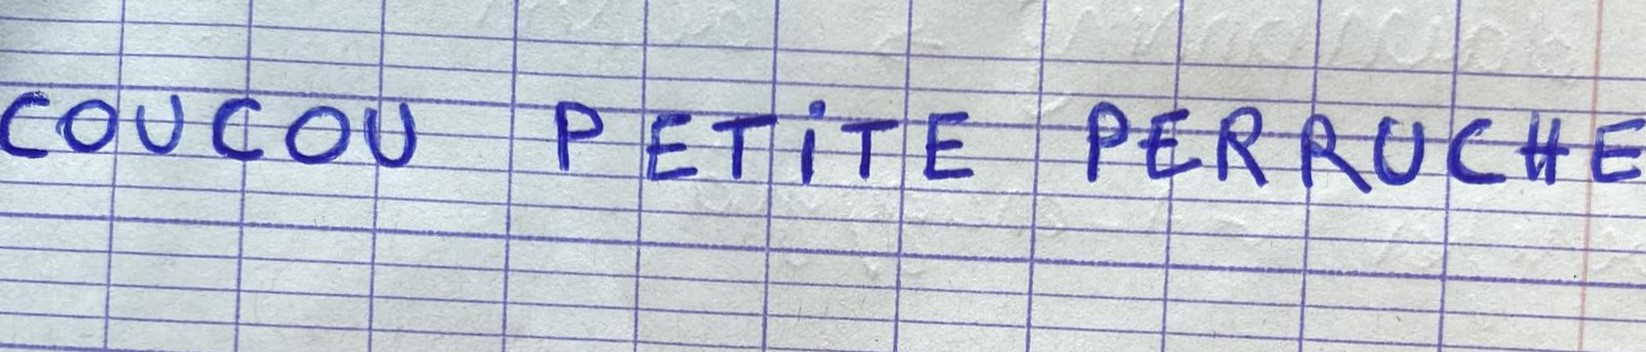 COUCOU PETiTE PERRUCHE